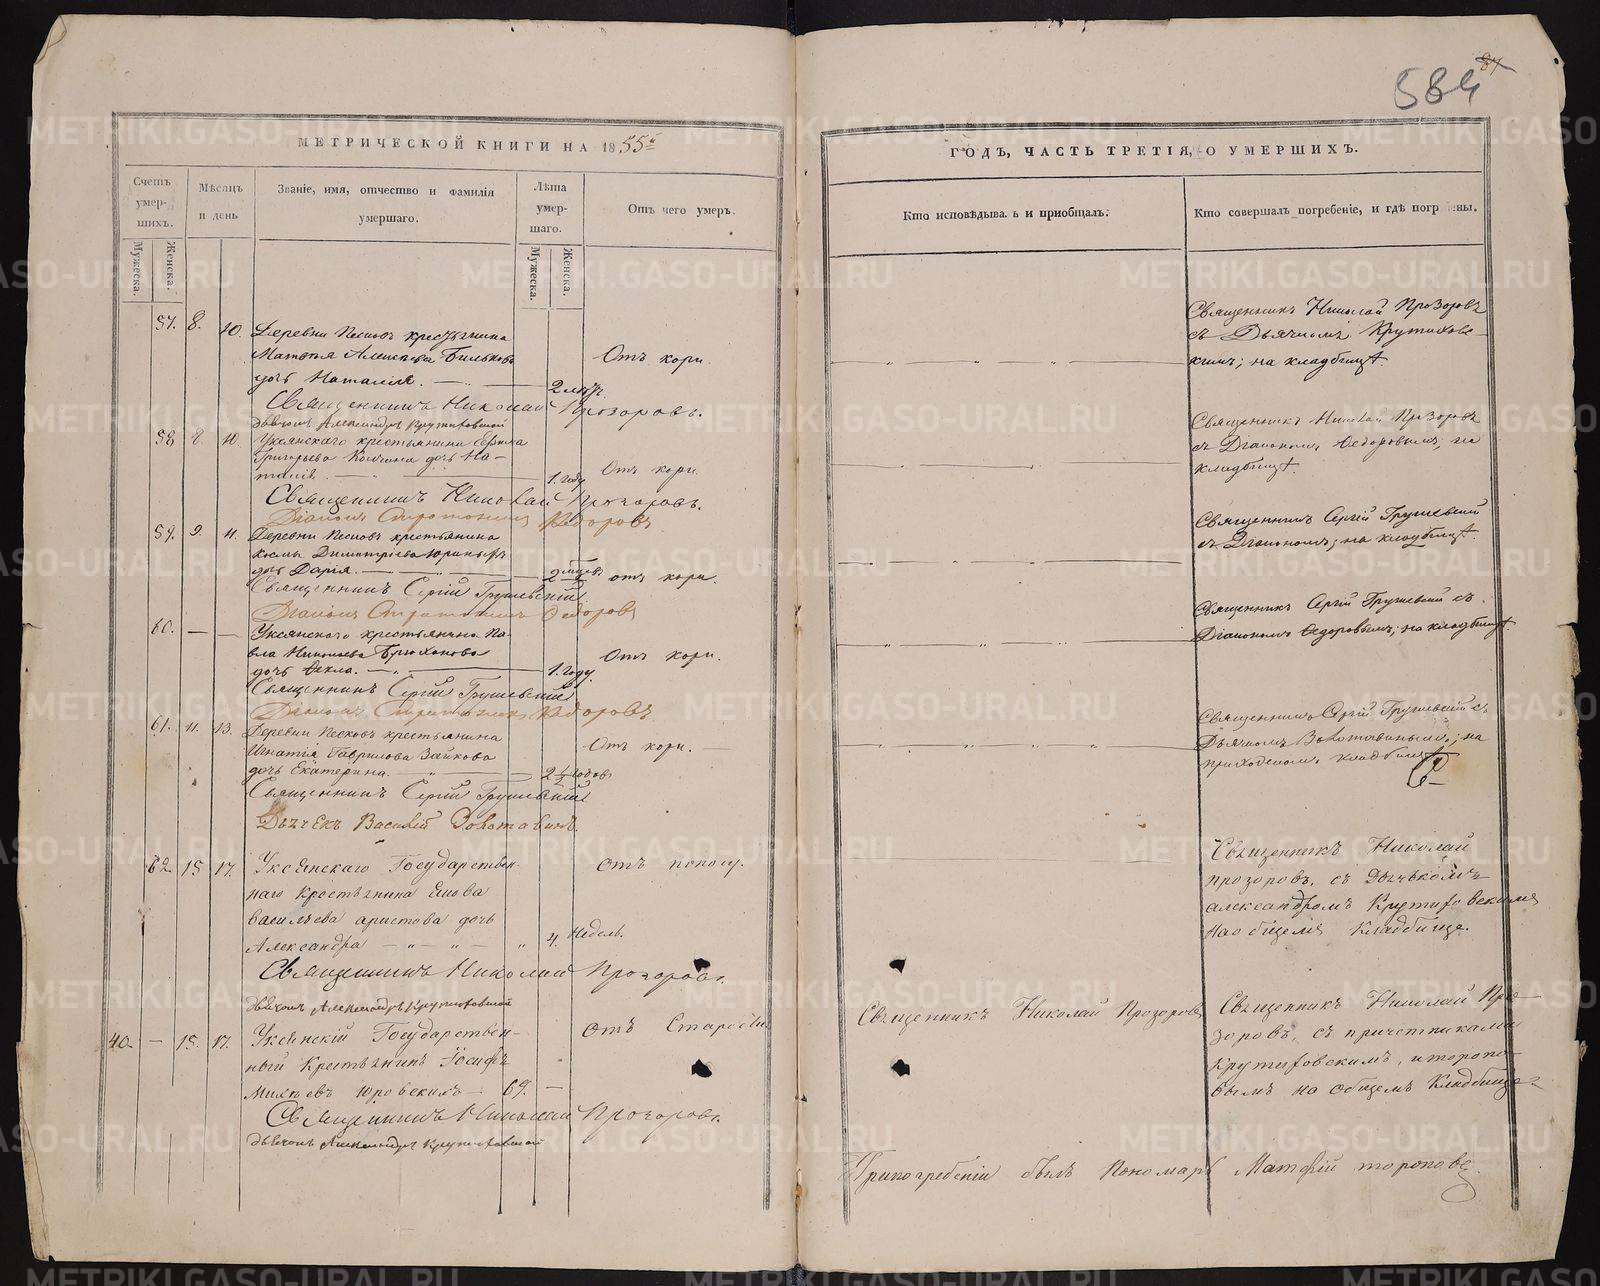 584
87
МЕТРИЧЕСКОЙ КНИГИ НА 1855й
Счетъ умершихъ.
Мужеска.
Женска.
Мѣсяцъ и день
Званіе, имя, отчество и фамилія умершаго.
Лѣта умершаго.
Мужеска.
Женска.
Отъ чего умеръ.
57. 8. 10. Деревни Песковъ крестьянина
Матвѣя Алексѣева Билькова
дочь Наталія. 2 лѣтъ.
Отъ кори.
Священникъ Николай Прозоровъ.
Дьячокъ Александръ Крутиховской
58. 8 10. Уксянскаго крестьянина
Григорьева дочь На-
талія 1. году
Отъ кори.
Священникъ Николай Прозоровъ.
Діаконъ Федоровъ
59. 9. 11. Деревни Песковъ крестьянина
Космы Димитріева
дочь Дарія. 2 мѣсяц.
отъ кори.
Священникъ Сергій Грушевскій
Діаконъ Федоровъ
60. — — Уксянскаго крестьянина Па-
вла Николаева Брюханова
дочь Ѳекла. 1. году.
Отъ кори.
Священникъ Сергій Грушевскій
Діаконъ Федоровъ
61. 11. 13. Деревни Песковъ крестьянина
Игнатія Гаврилова Зайкова
дочь Екатерина. 2 1/2 годов
Отъ кори.
Священникъ Сергій Грушевскій
Дьячекъ Василій Золотавинъ.
62. 15 17. Уксянскаго Государствен-
наго Крестьянина Якова
Васильева аристова дочь
Александра 4. недель.
отъ поносу.
Священникъ Николай Прозоровъ.
Дьячокъ Александръ Крутиховской
40. — 15. 17. Уксянскій Государствен-
ный Крестьянинъ Іосифъ
Михѣевъ Юровскихъ 69. —
отъ Старости
Священникъ Николай Прозоровъ.
Дьячокъ Александръ Крутиховской
ГОДЪ, ЧАСТЬ ТРЕТІЯ, О УМЕРШИХЪ.
Кто исповѣдыва ъ и приобщалъ.
Кто совершалъ погребеніе, и гдѣ погр ены.
Священникъ Николай Прозоровъ
съ Дьячкомъ Крутиховс-
кимъ; на кладбищѣ.
Священникъ Николай Прозоровъ
съ Діакономъ Ѳедоровымъ, на
кладбищѣ.
Священникъ Сергій Грушевскій
съ Діакономъ; на кладбищѣ.
Священникъ Сергій Грушевскій съ
Діакономъ Ѳедоровымъ; на кладбищѣ.
Священникъ Сергій Грушевскій съ
Дьячкомъ Золотавинымъ; на
приходскомъ кладбищѣ
Священникъ Николай
прозоровъ. съ Дьячькомъ
александромъ Крутиховскимъ
на общемъ Кладбище.
Священникъ Николай Прозоровъ
Священникъ Николай Про-
зоровъ, съ причетниками
Крутиховскимъ, и торопо-
вымъ на общемъ Кладбище
При погребеніи былъ Пономарь Матфій тороповъ.
METRIKI.GASO-URAL.RU